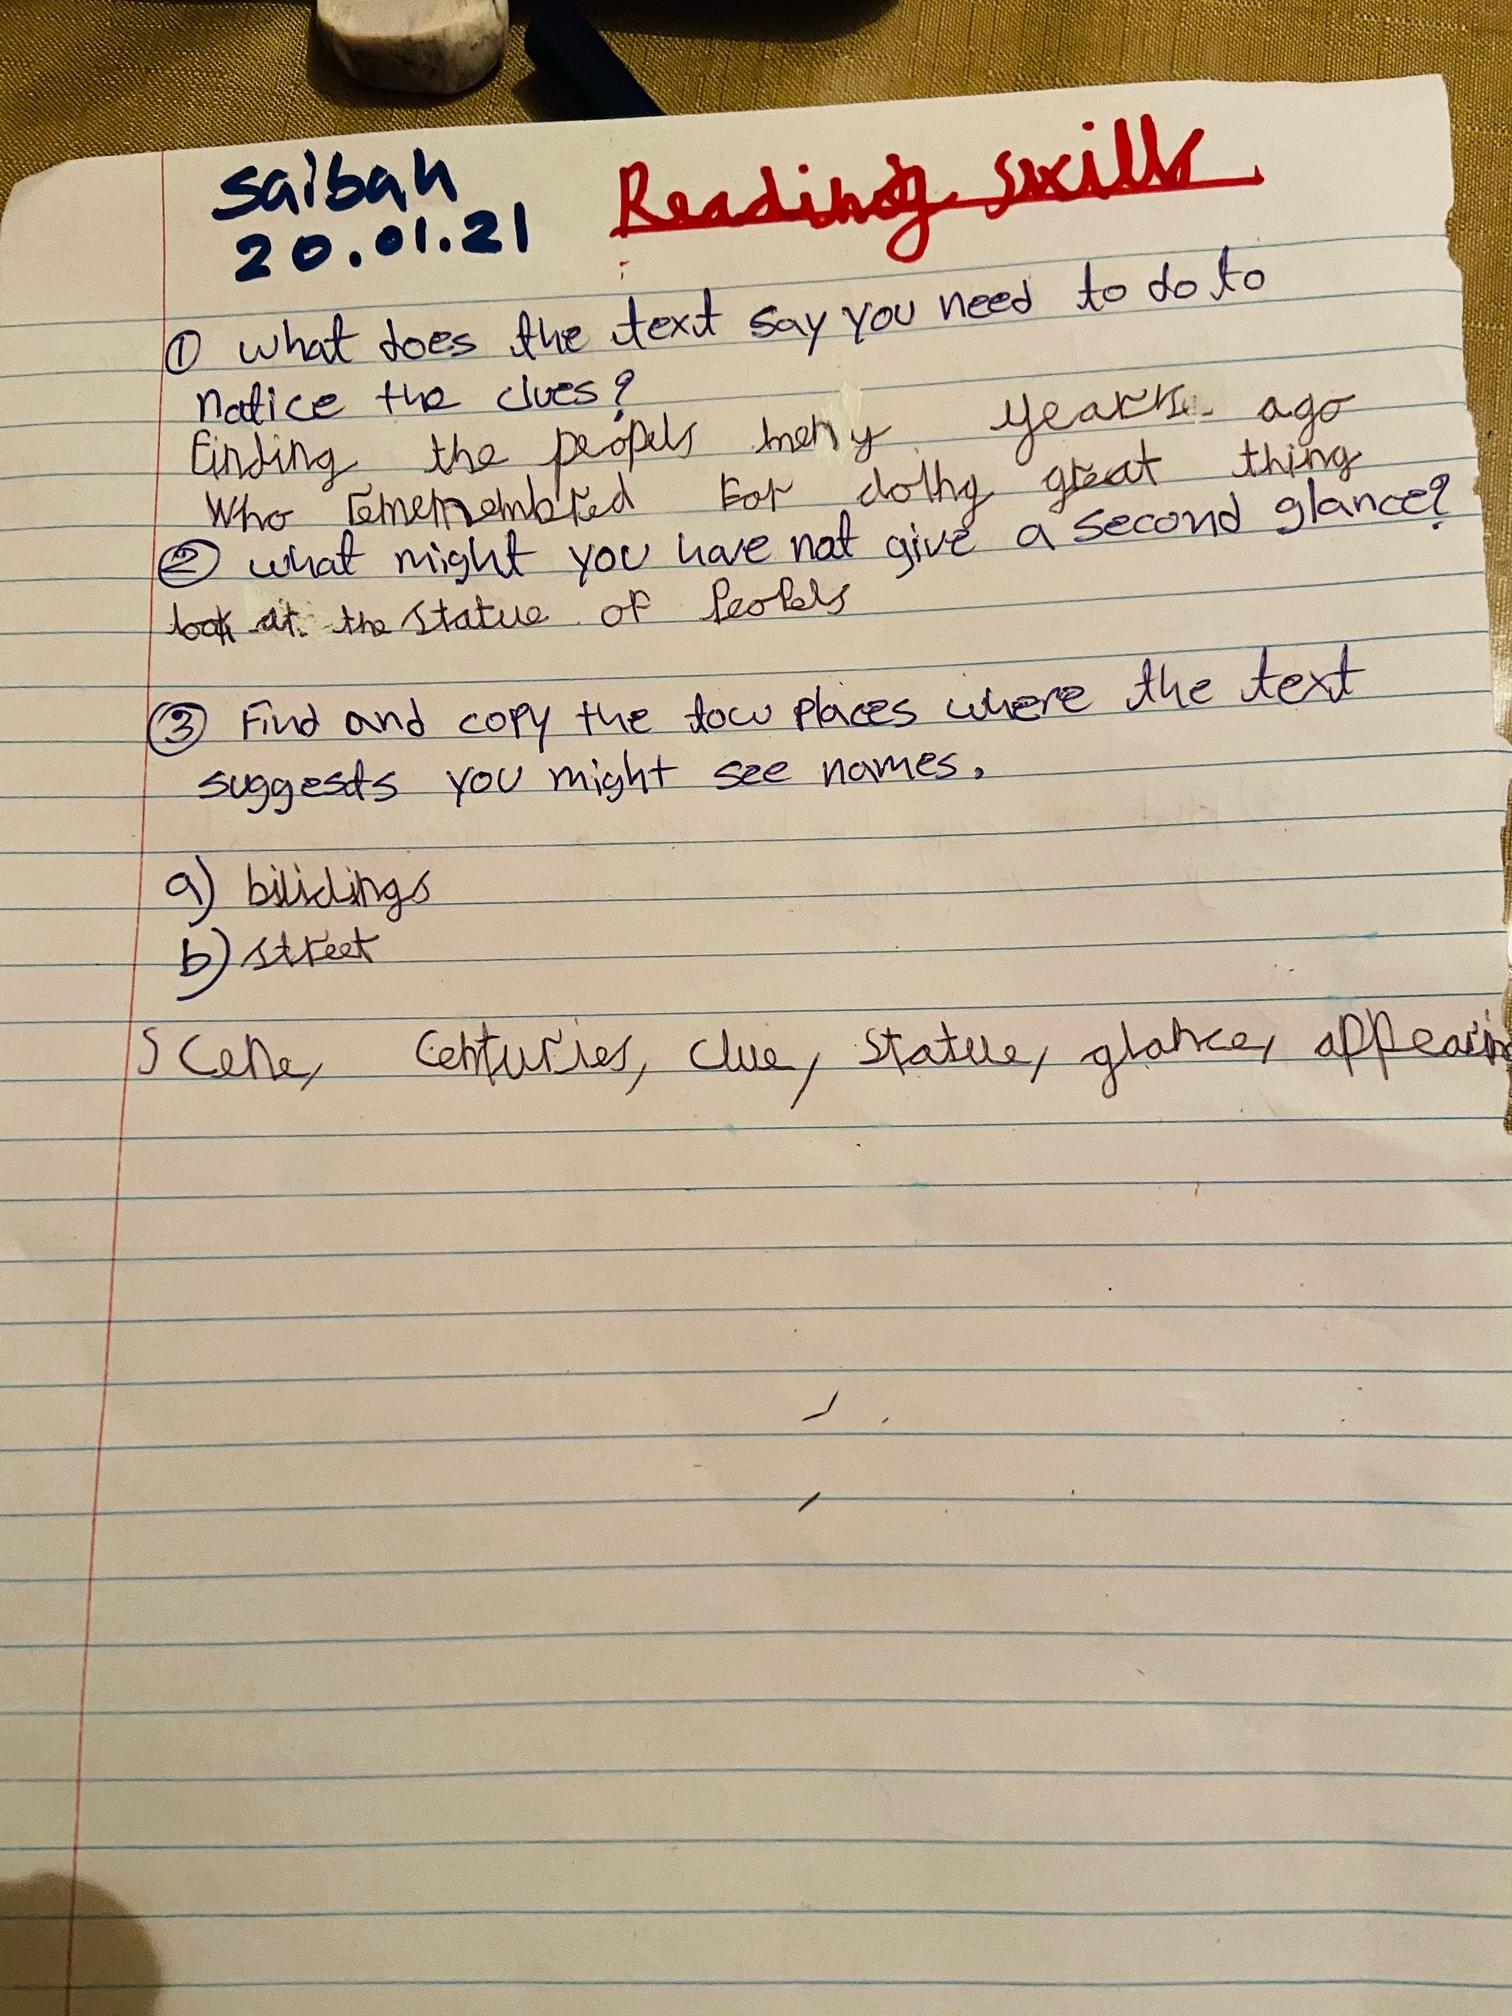 Saibah Reading skills
20.01.21
① what does the text say you need to do to
notice the clues?
Finding the peopels meny years ago
Who rememembred For dothg great thing
② what might you have not give a second glance?
look at the statue of Peopels
③ Find and copy the tow places where the text
suggests you might see names.
a) bilidings
b) street
Scene, Centuries, clue, statue, glance, appearin